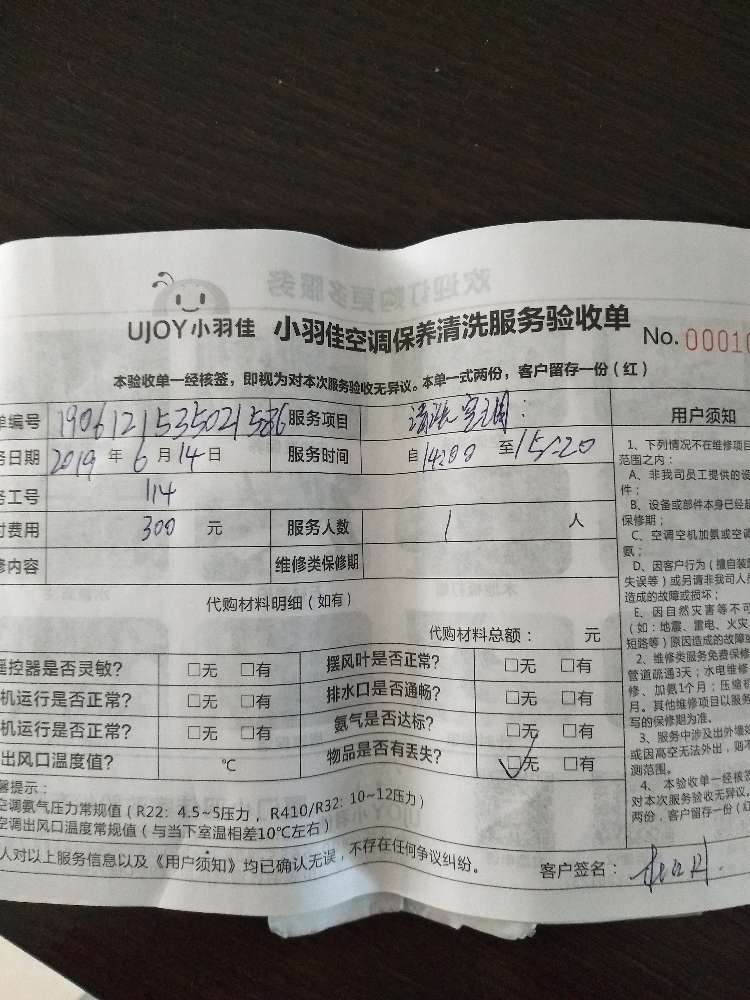 UJOY小羽佳 小羽佳空调保养清洗服务验收单 No. 00010
本验收单一经核签，即视为对本次服务验收无异议。本单一式两份，客户留存一份（红）
单编号 1906121535021586 服务项目 清洗空调: 用户须知
务日期 2019 年 6 月 14 日 服务时间 自 14:00 至 15:20
务工号 114
付费用 300 元 服务人数 1 人
修内容 维修类保修期
代购材料明细（如有）
代购材料总额： 元
遥控器是否灵敏? □无 □有 摆风叶是否正常? □无 □有
机运行是否正常? □无 □有 排水口是否通畅? □无 □有
机运行是否正常? □无 □有 氨气是否达标? □无 □有
出风口温度值? ℃ 物品是否有丢失? □无 □有
馨提示：
空调氨气压力常规值（R22: 4.5~5压力，R410/R32: 10~12压力）
空调出风口温度常规值（与当下室温相差10℃左右）
人对以上服务信息以及《用户须知》均已确认无误，不存在任何争议纠纷。 客户签名：
1、下列情况不在维修项目
范围之内：
A、非我司员工提供的设
件；
B、设备或部件本身已经超
保修期；
C、空调空机加氨或空调
氨；
D、因客户行为（擅自装
失误等）或另请非我司人员
造成的故障或损坏；
E、因自然灾害等不可
（如：地震、雷电、火灾
短路等）原因造成的故障或
2、维修类服务免费保修
管道疏通3天；水电维修
修、加氨1个月；压缩机
月。其他维修项目以服务
写的保修期为准。
3、服务中涉及出外墙
或因高空无法外出，则不
测范围。
4、本验收单一经核签
对本次服务验收无异议。
两份，客户留存一份（红
欢迎订购更多服务